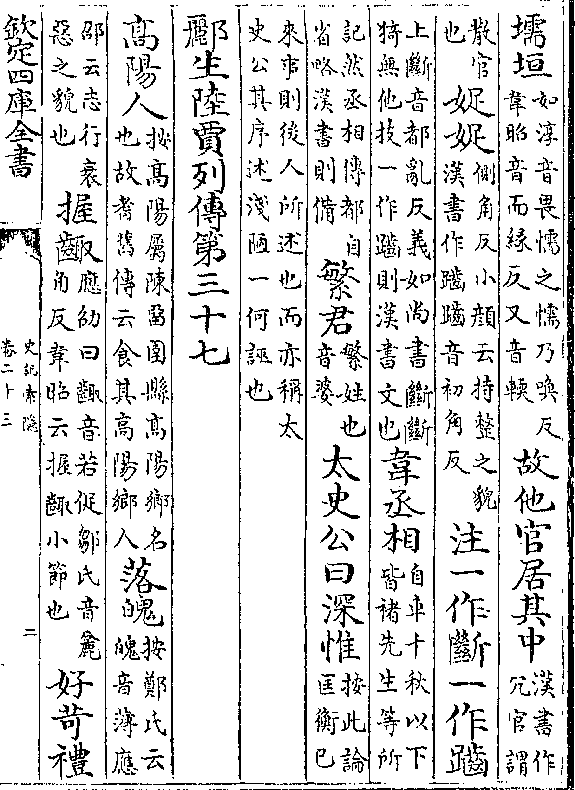 壖垣如淳音畏懦之懦乃喚反韋昭音而緣反又音輭故他官居其中漢書作冗官謂
散官也娖娖側角反小顔云持整之貌漢書作齪齪音初角反注一作斷一作齪
上斷音都亂反義如尚書斷斷猗無他技一作齪則漢書文也韋丞相自車千秋以下皆褚先生等所
記然丞相傳都自省略漢書則備繁君繁姓也音婆太史公曰深惟按此論匡衡已
來事則後人所述也而亦稱太史公其序述淺陋一何誣也
酈生陸賈列傳第三十七
髙陽人按髙陽屬陳留圉縣髙陽鄉名也故耆舊傳云食其高陽鄉人落魄按鄭氏云魄音薄應
邵云志行衰惡之貌也握齱應劭曰齱音若促鄒氏音麄角反韋昭云握齱小節也好苛禮
欽定四庫全書
史記索隱
卷二十三
二